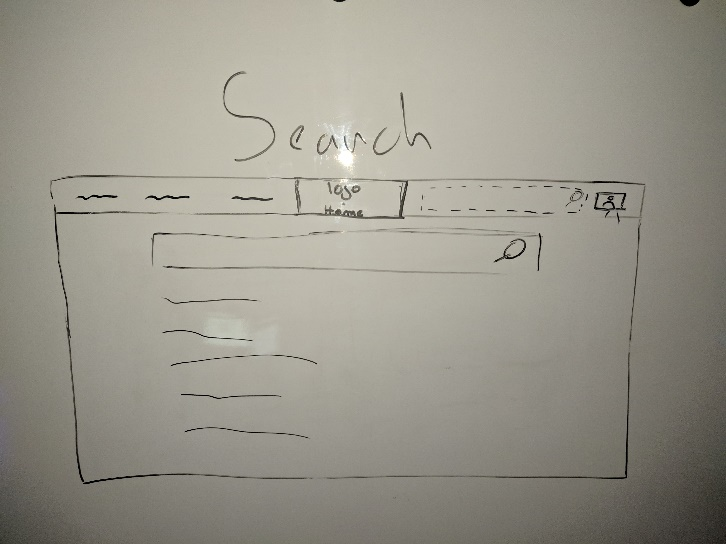 Search
logo
Home